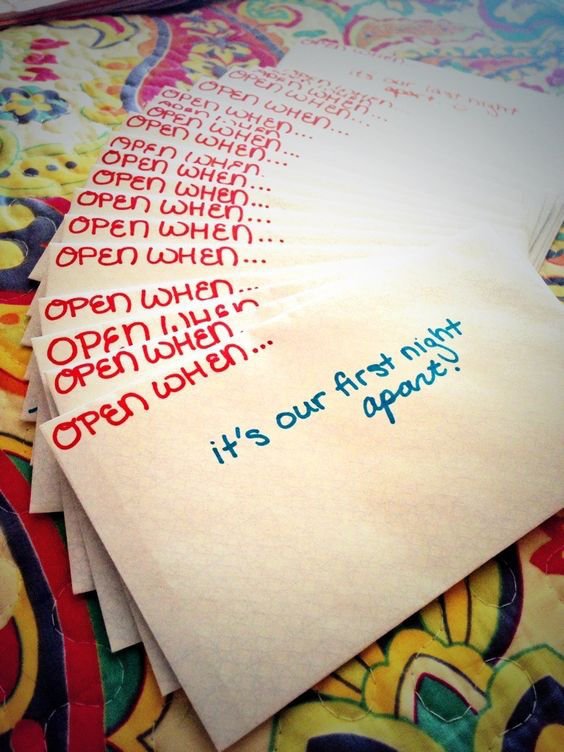 OPEN WHEN
it's our last night
apart
OPEN WHEN...
OPEN WHEN...
OPEN WHEN...
OPEN WHEN...
OPEN WHEN...
OPEN WHEN
OPEN WHEN...
OPEN WHEN...
OPEN WHEN...
OPEN WHEN...
OPEN WHEN...
OPEN WHEN...
OPEN WHEN
OPEN WHEN.
OPEN WHEN...
it's our first night
apart!